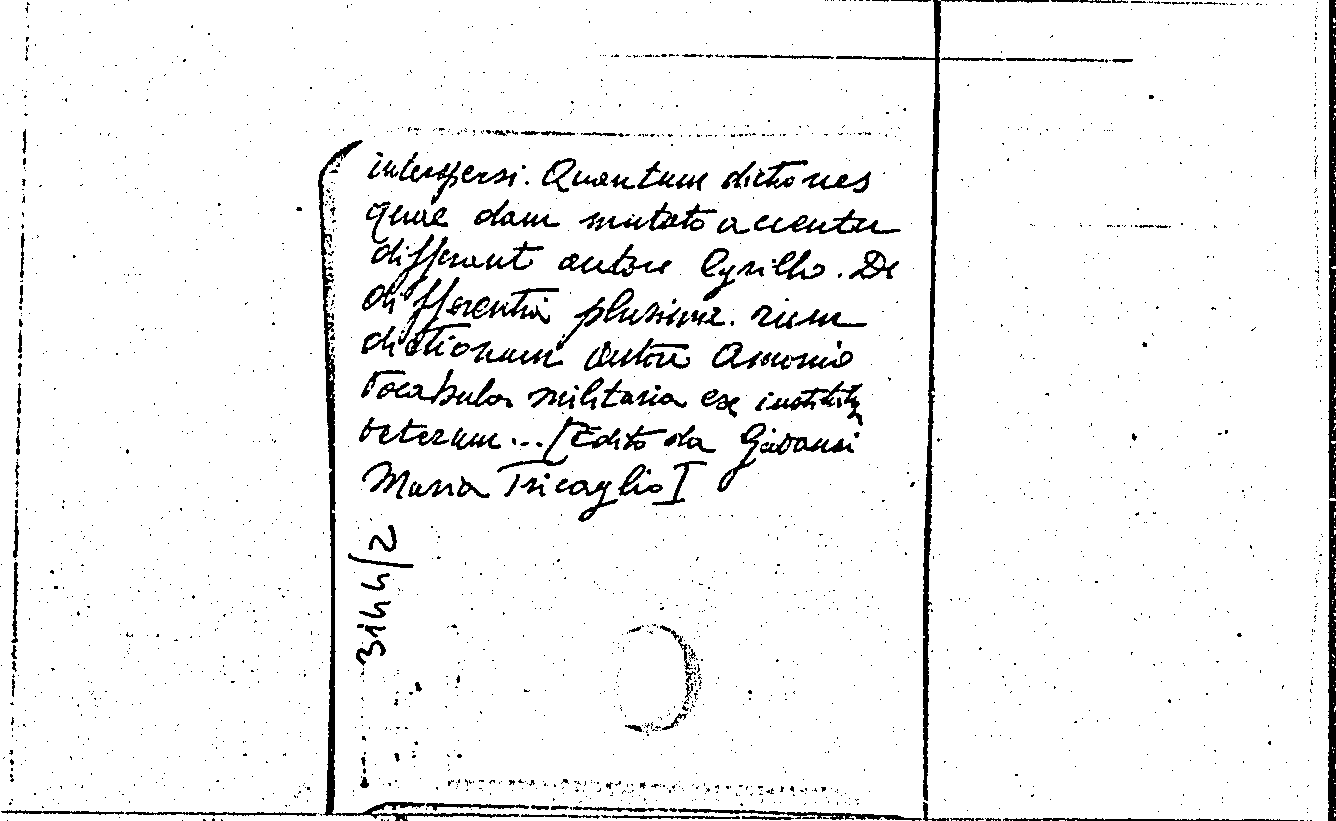 interspersi. Quantum dictiones
quae dam mutato accentu
differant autore Cyrillo. De
differentia plurima. rum
dictionum autore Amonio
Vocabula militaria ex institut
veterum...[Edito da Giovanni
Maria Tricaglio]
3144/2